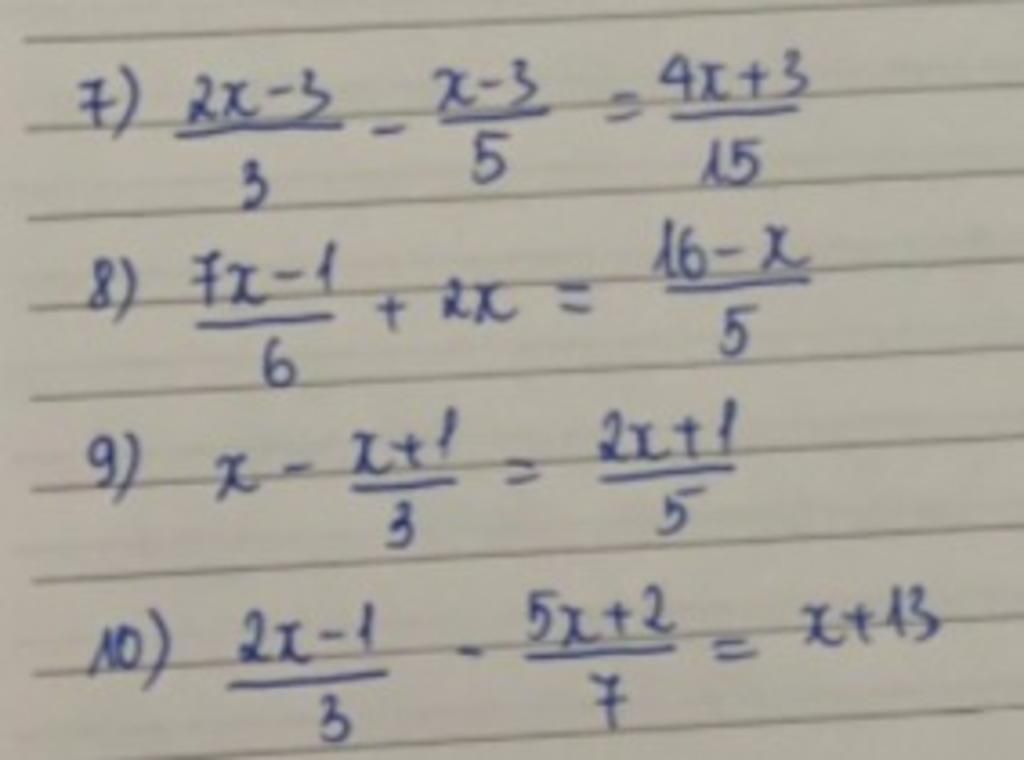 7) (2x-3)/3 - (x-3)/5 = (4x+3)/15
8) (7x-1)/6 + 2x = (16-x)/5
9) x - (x+1)/3 = (2x+1)/5
10) (2x-1)/3 - (5x+2)/7 = x+13